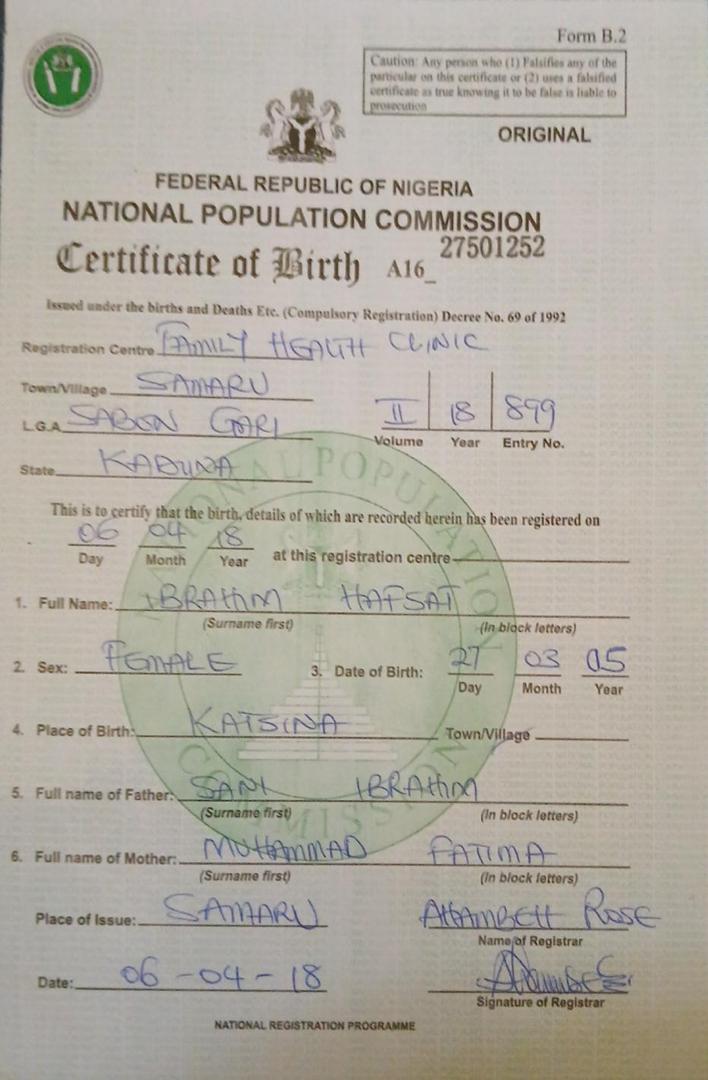 Form B.2
Caution: Any person who (1) Falsifies any of the
particular on this certificate or (2) uses a falsified
certificate as true knowing it to be false is liable to
prosecution
ORIGINAL
FEDERAL REPUBLIC OF NIGERIA
NATIONAL POPULATION COMMISSION
Certificate of Birth A16_ 27501252
Issued under the births and Deaths Etc. (Compulsory Registration) Decree No. 69 of 1992
Registration Centre FAMILY HEALTH CLINIC
Town/Village SAMARU
L.G.A SABON GARI
II 18 899
Volume Year Entry No.
State KADUNA
This is to certify that the birth, details of which are recorded herein has been registered on
06 04 18
Day Month Year at this registration centre
1. Full Name: IBRAHIM HAFSAT
(Surname first) (In block letters)
2. Sex: FEMALE 3. Date of Birth: 27 03 05
Day Month Year
4. Place of Birth: KATSINA Town/Village
5. Full name of Father: SANI IBRAHIM
(Surname first) (In block letters)
6. Full name of Mother: MUHAMMAD FATIMA
(Surname first) (In block letters)
Place of Issue: SAMARU ROSE
Name of Registrar
Date: 06-04-18
Signature of Registrar
NATIONAL REGISTRATION PROGRAMME
NATIONAL POPULATION COMMISSION